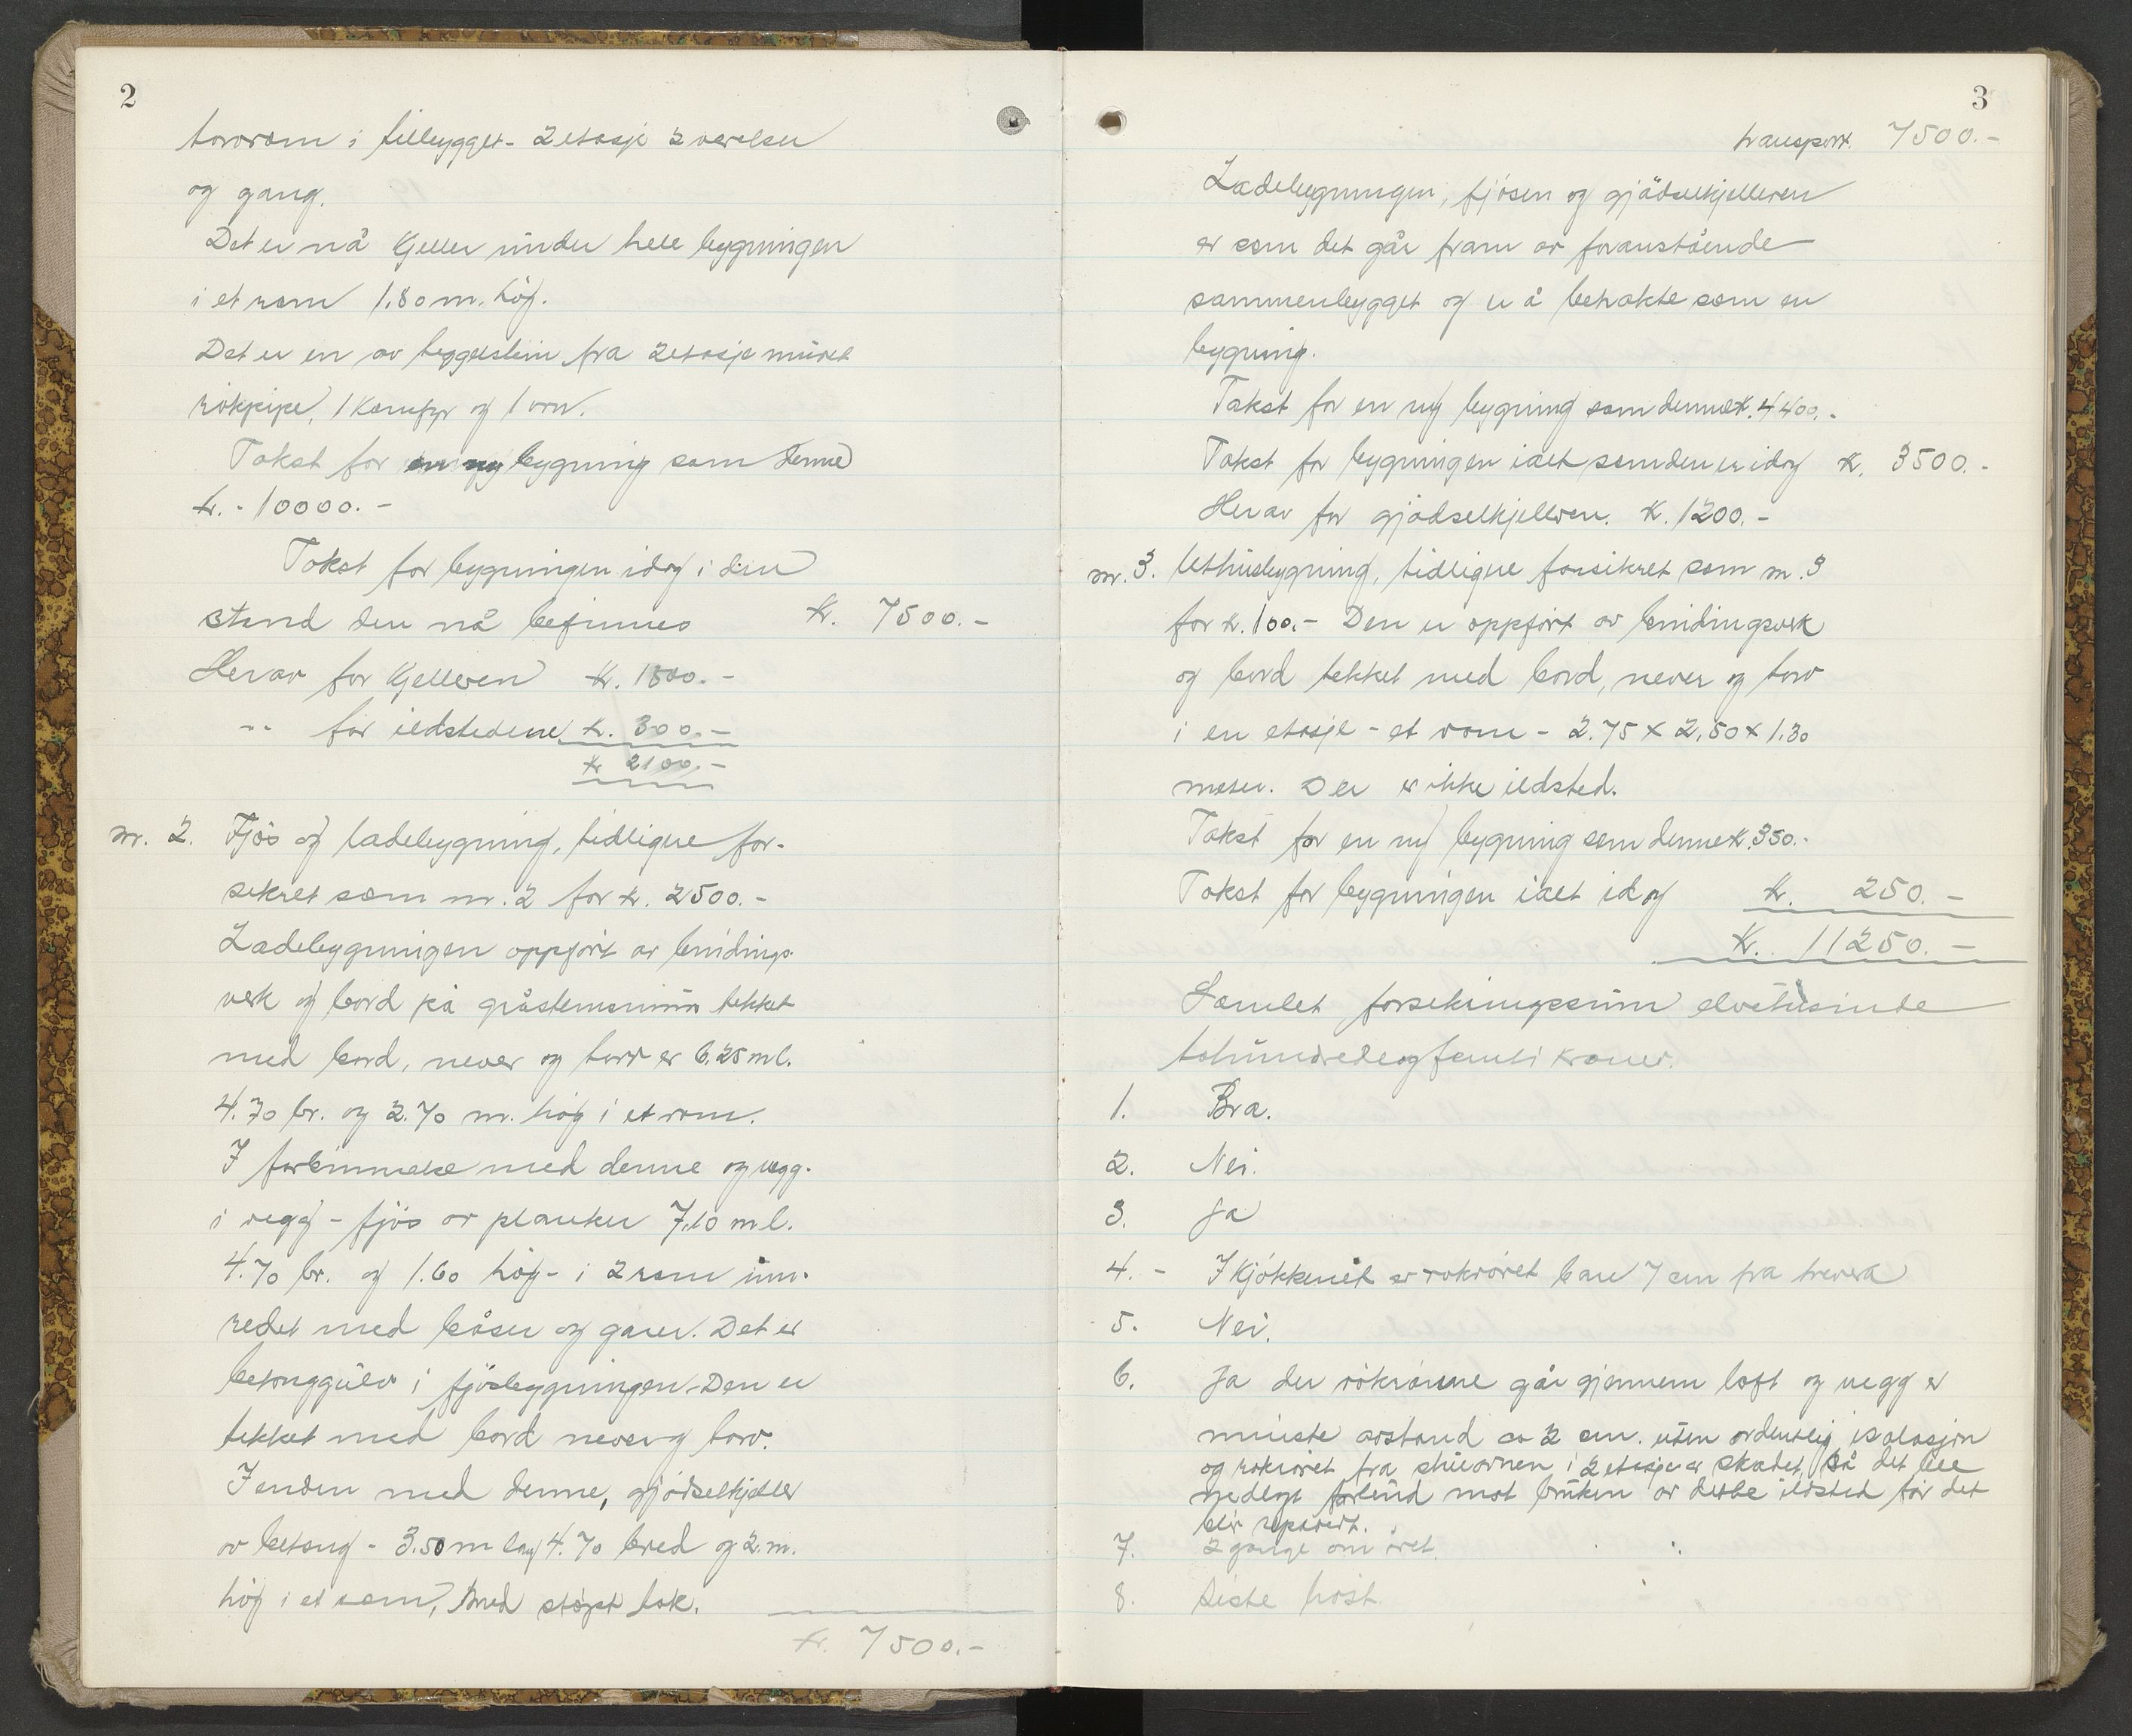 2
torvrom i tilbygget - 2 etasje 2 værelser
og gang.
Det er nå kjeller under hele bygningen
i et rom 1.80 m. høg.
Det er en av teggelstein fra 2 etasje muret
rökpipe, 1 komfyr og 1 ovn.
Takst for en ny bygning som denne
kr. - 10000.-
Takst for bygningen idag i den
stand den nå befinnes kr. 7500.-
Herav for kjelleren kr. 1800.-
-"- for ildstedene kr. 300.-
kr 2100.-
nr. 2. Fjøs og ladebygning, tidligere for-
sikret som nr. 2 for kr. 2500.-
Ladebygningen oppført av bindings-
verk og bord på gråstensmur tekket
med bord, never og torv er 6.25 m l.
4.70 br. og 2.70 m. høg i et rom.
I forbinnelse med denne og vegg-
i vegg - fjøs av planker 7.10 m l.
4.70 br. og 1.60 høg - i 2 rom inn-
redet med båser og garer. Det er
betonggulv i fjøsbygningen. Den er
tekket med bord never og torv.
I enden med denne, gjødselkjeller
av betong - 3.50 m lang 4.70 bred og 2. m.
høg i et rom, med støpt lok.
kr. 7500.-
3
transport. 7500.-
Ladebygningen, fjøsen og gjødselkjelleren
er som det går fram av foranstående
sammenbygget og er å betrakte som en
bygning.
Takst for en ny bygning som denne kr. 4400.-
Takst for bygningen ialt som den er idag kr. 3500.-
Herav for gjødselkjelleren. kr. 1200.-
nr. 3. Uthusbygning, tidligere forsikret som nr. 3
for kr. 100.- Den er oppført av bindingsverk
og bord tekket med bord, never og torv
i en etasje - et rom - 2.75 x 2.50 x 1.30
meter. Der er ikke ildsted.
Takst for en ny bygning som denne kr. 350.-
Takst for bygningen ialt idag kr. 250.-
kr. 11250.-
Samlet forsekringssum elvetusinde
tohundredeogfemti kroner.
1. Bra.
2. Nei.
3. Ja
4. - I kjøkkenet er rokrøret bare 7 cm fra treverk
5. Nei.
6. Ja der rökrörene går gjennem loft og vegg er
minste avstand ca 2 cm. uten ordentlig isolasjon
og rokrøret fra stueovnen i 2 etasje er skadet, så det ble
nedlagt forbud mot bruken av dette ildsted før det
blir reparert.
7. 2 gange om året.
8. Siste høst.